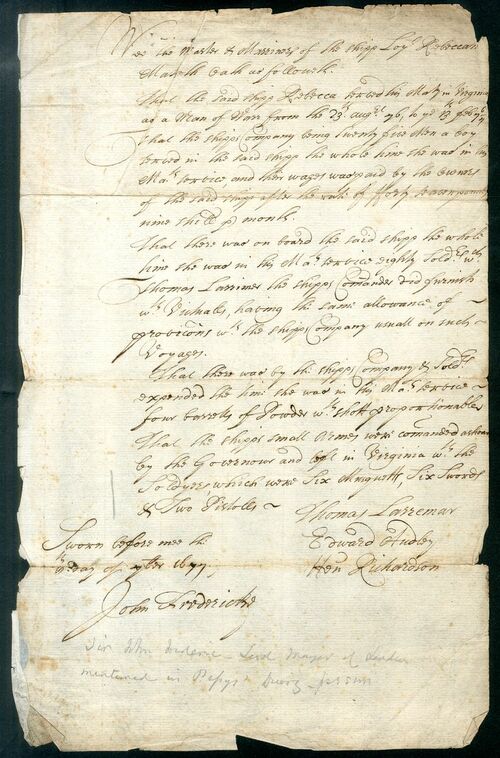 Wee the Master & Marriners of the shipp Loyll Rebecca
Maketh Oath as followeth.
That the said shipp Rebecca served his Maty in Virginia
as a Man of Warr from the 29th augst 76, to ye 19th feby
That the shipps Company being twenty five Men a boy
served in the said shipp the whole time she was in his
Mats service and their wages was paid by the Owners
of the said shipp after the rate of fforty seaven pounds
nine shill pr month.
That there was on board the said shipp the whole
time she was in his Mats service eighty Soldrs
Thomas Larrimer the shipps Comander did furnish
wth Victualls, having the same allowance of
provicons wth the shipps Company usuall on such
Voyages.
That there was by the shipps Company & Soldrs
expended the time she was in his Mats service
four barrels of Powder wth shott proportionable
That the shipps small Armes were comanded ashoar
by the Governour and left in Virginia wth the
Soldyers, which were Six Musquetts, Six Swords
& Two Pistolls
Thomas Larremar
Sworn before mee the
Edward
day of 1677
Hen Richardson
John Frederick
Sir John - Lord Mayor of London
mentioned in Pepys Diary